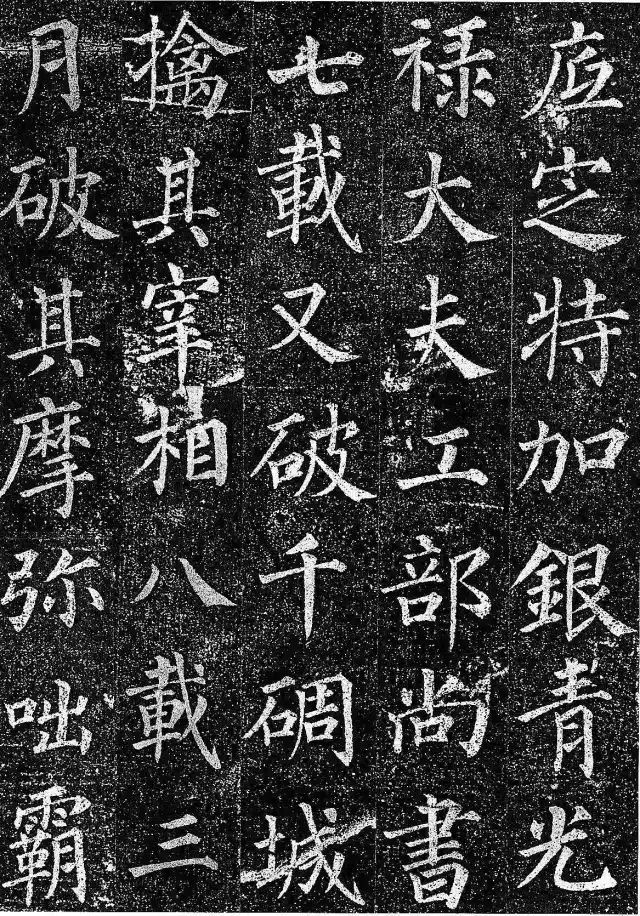 底定特加銀青光
禄大夫工部尚書
七載又破千碉城
擒其宰相八載三
月破其摩弥咄霸